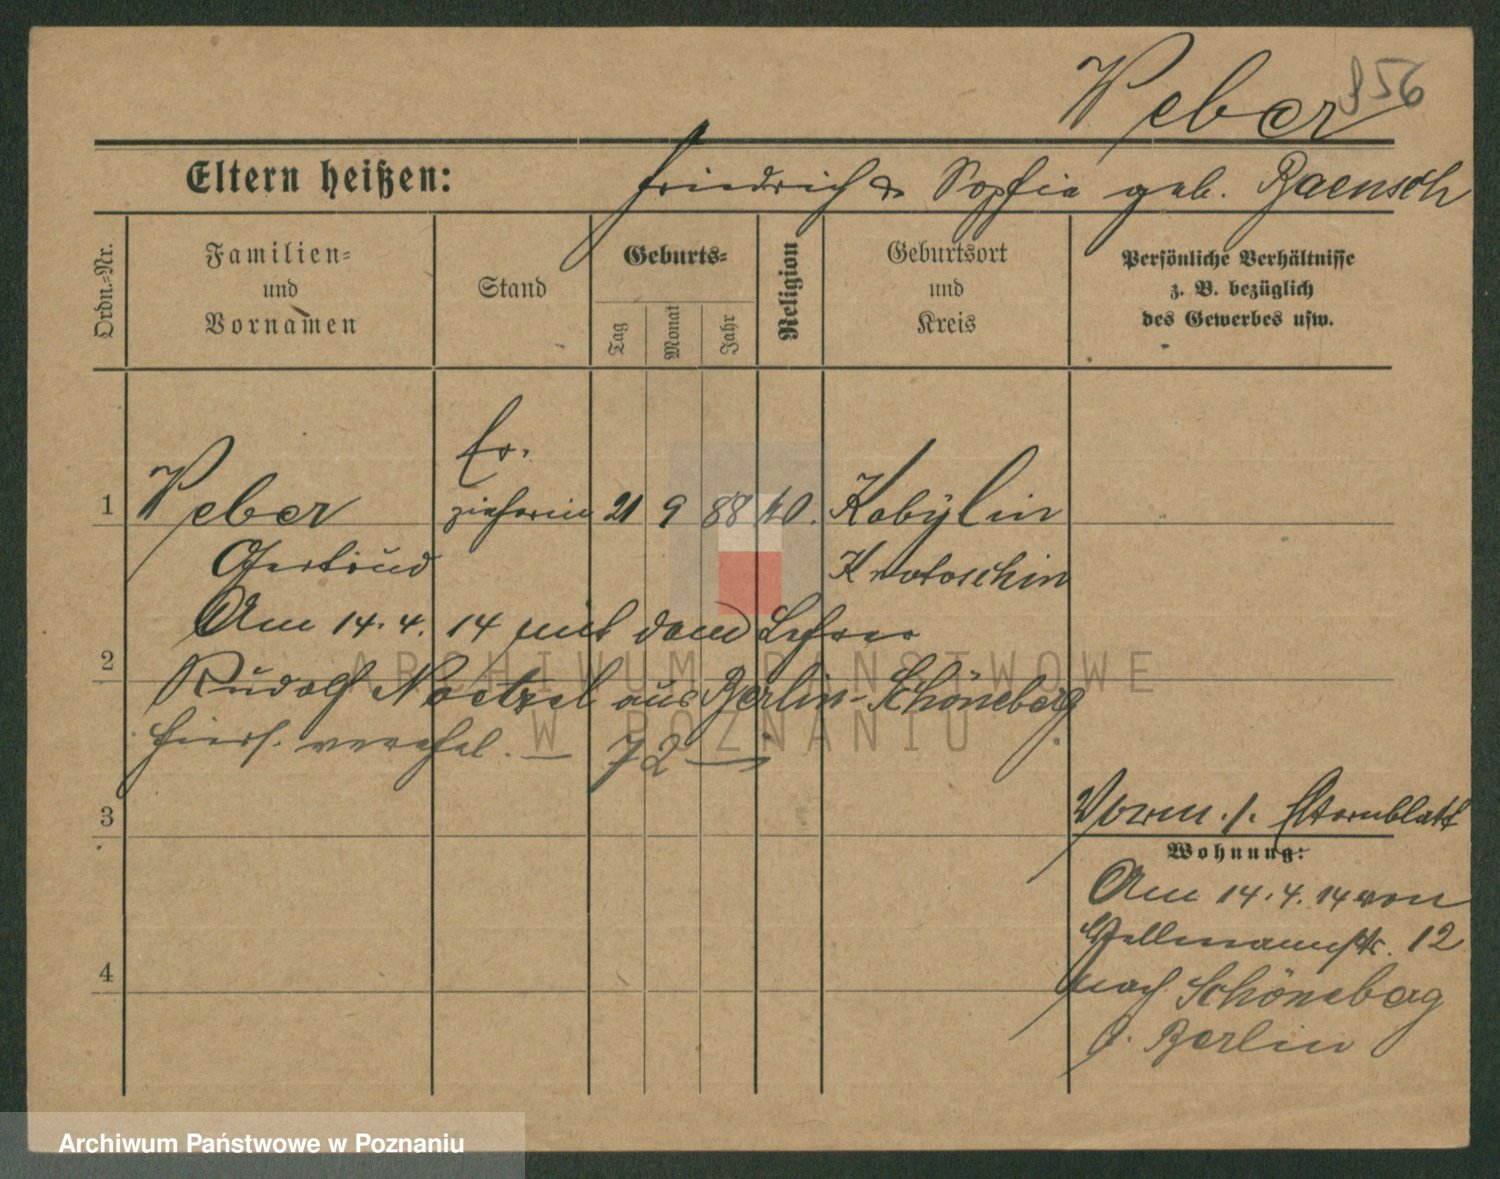 Weber
956
Eltern heißen: Friedrich & Sophie geb. Baensch
Ordn.-Nr.
Familien-
und
Vornamen
Stand
Geburts-
Tag
Monat
Jahr
Religion
Geburtsort
und
Kreis
Persönliche Verhältnisse
z. B. bezüglich
des Gewerbes usw.
Er-
1 Weber zieherin 21 9 88 Kobylin
Gertrud Krotoschin
Am 14.4.14 mit dem Lehrer
2
Rudolf Noetzel aus Berlin-Schöneberg
hiers. verehel. — 72 —
Vorm. s. Elternblatt
3
Wohnung:
Am 14.4.14 von
12
4
nach Schöneberg
b. Berlin
ARCHIWUM PAŃSTWOWE
W POZNANIU
Archiwum Państwowe w Poznaniu